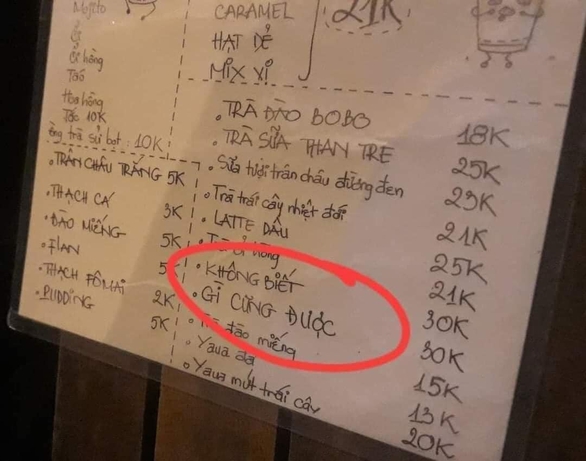 Mojito
Ổi
Ổi hồng
Táo
Hoa hồng
Tắc 10K
: 10K
CARAMEL
HẠT DẺ
MIX VỊ
21K
• TRÂN CHÂU TRẮNG 5K
• THẠCH CÁ 3K
• ĐÀO MIẾNG 5K
• FLAN 5K
• THẠCH FÔMAI 2K
• PUDDING 5K
• TRÀ ĐÀO BOBO 18K
• TRÀ SỮA THAN TRE 25K
• Sữa tươi trân châu đường đen 23K
• Trà trái cây nhiệt đới 21K
• LATTE DÂU 25K
• Trà ổi hồng 21K
• KHÔNG BIẾT 30K
• GÌ CŨNG ĐƯỢC 30K
• Trà đào miếng 15K
• Yaua đá 13K
• Yaua mứt trái cây 20K